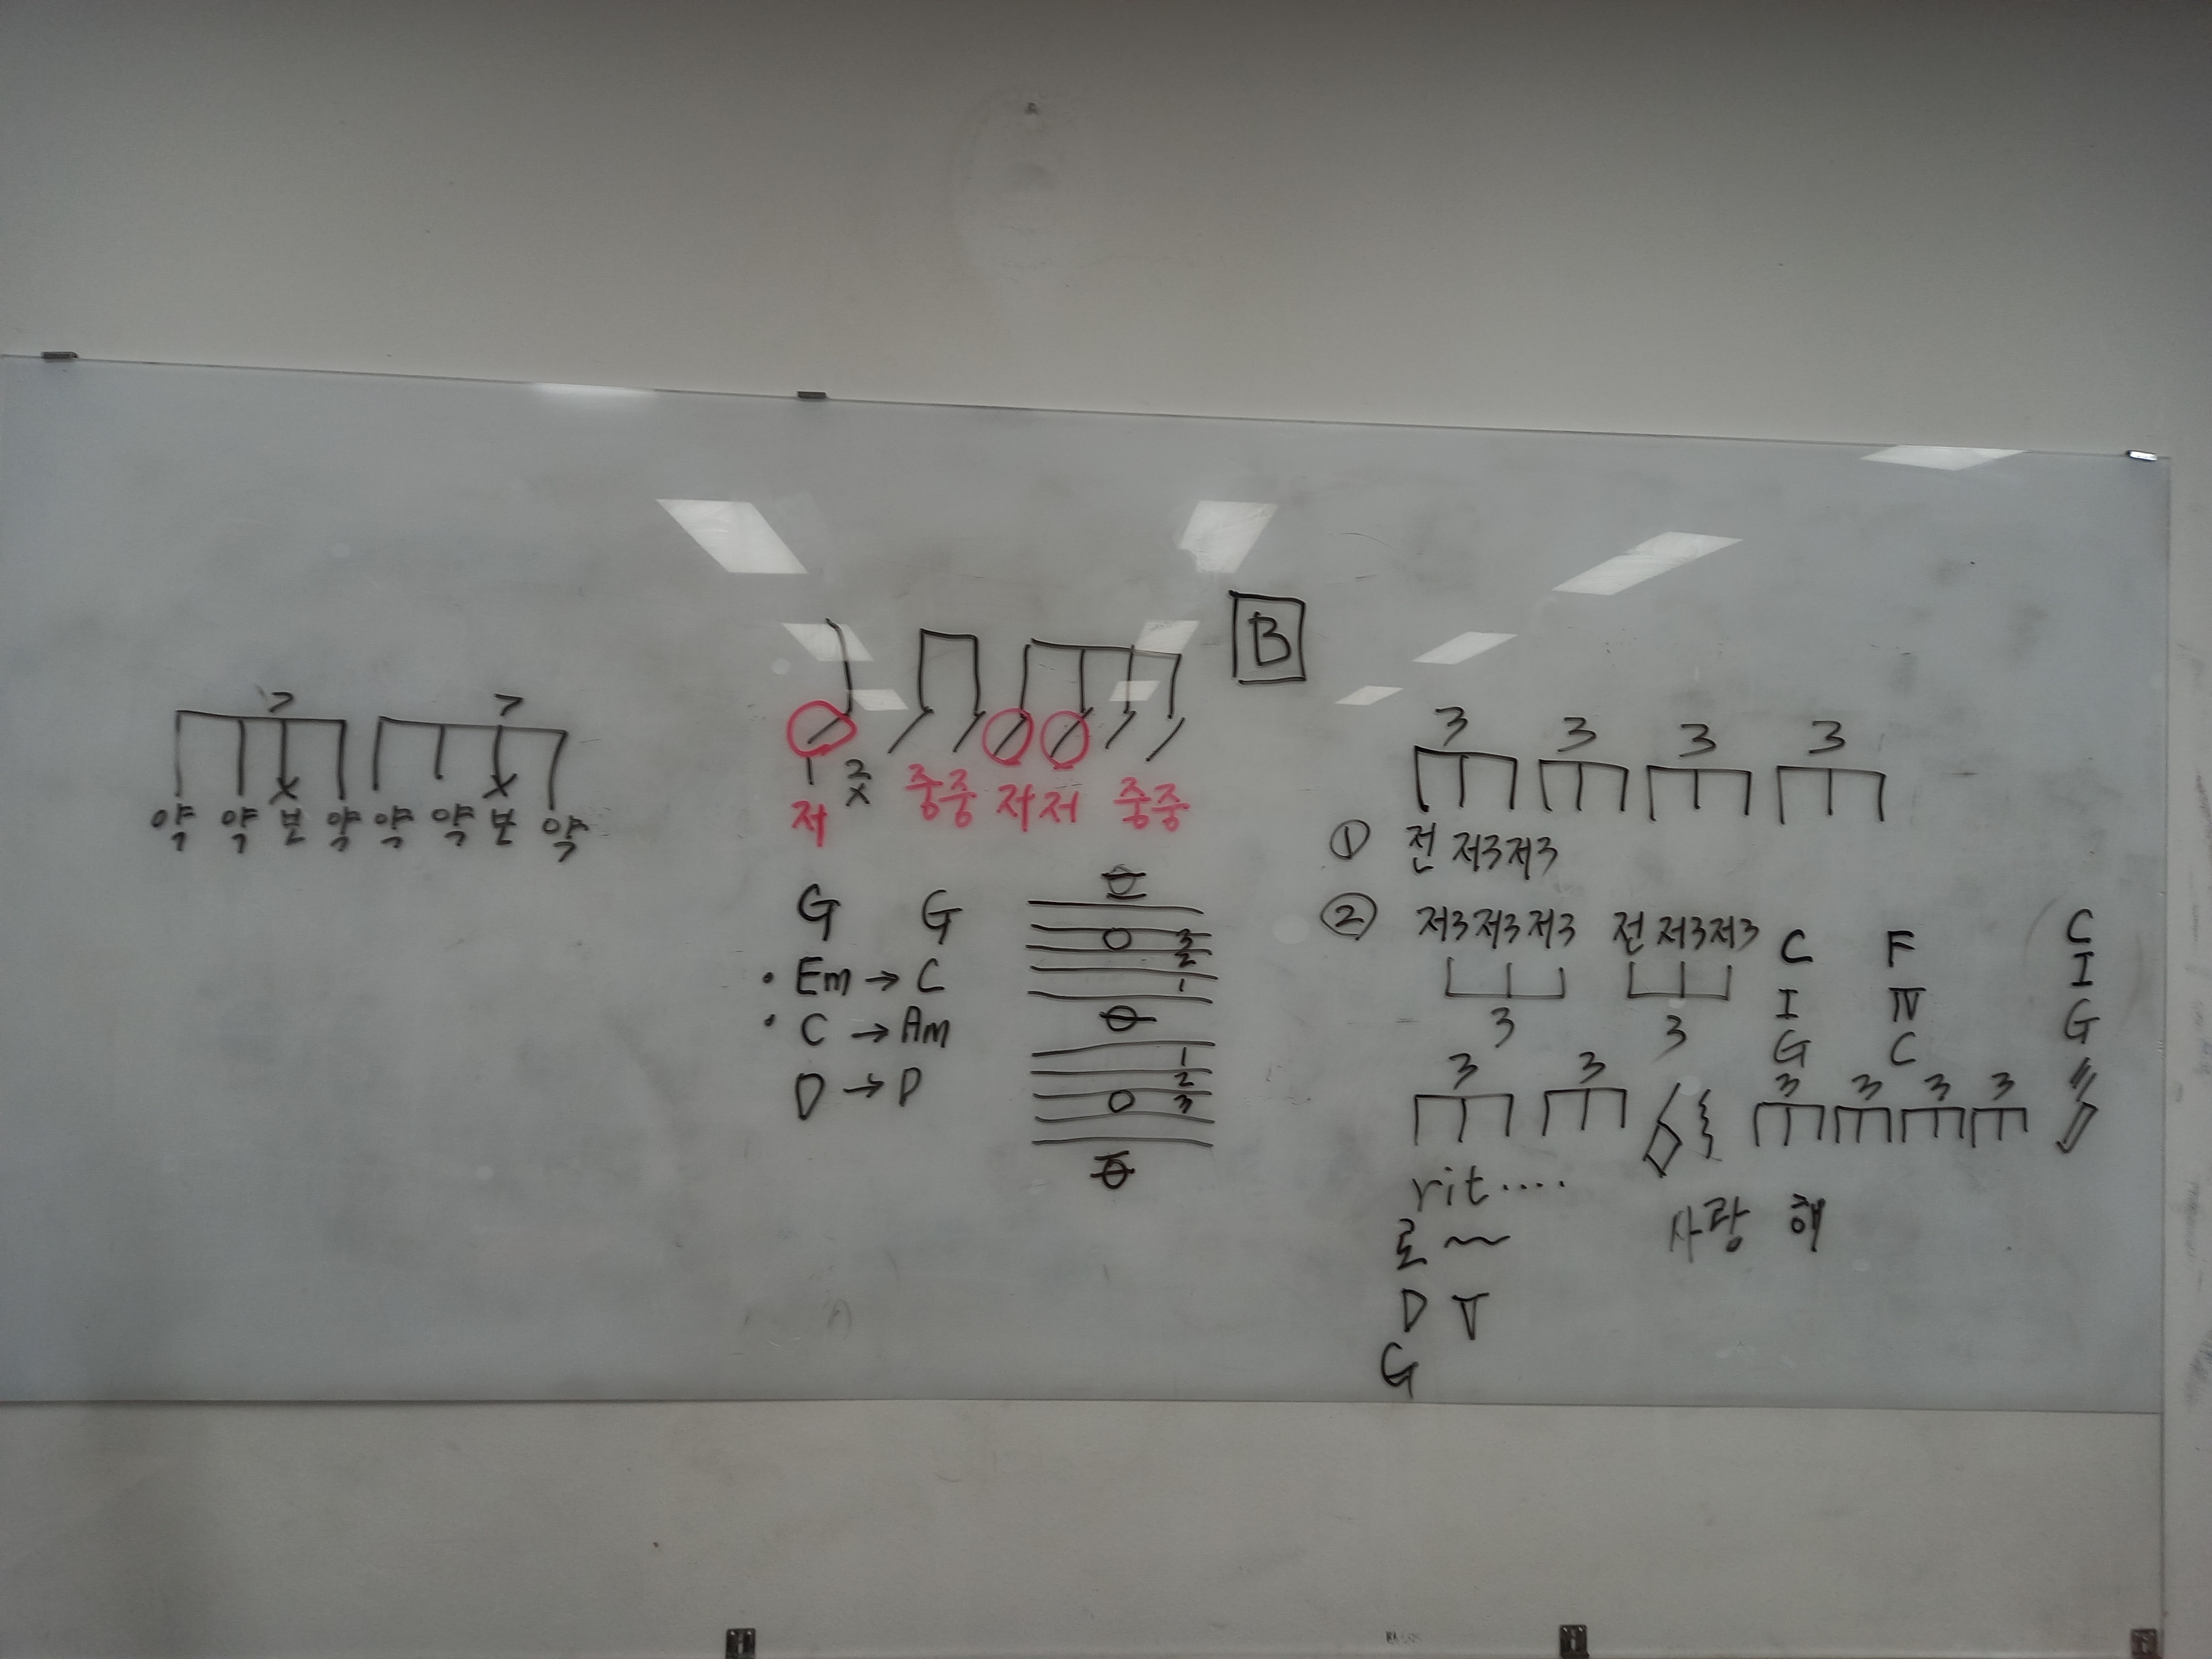 > >
약 약 보 약 약 약 보 약
B
1 2
x
저 중중 저저 중중
G G
• Em → C
• C → Am
D → D
3
2
1
1
2
3
3 3 3 3
① 전 저3저3
② 저3저3저3 전 저3저3
3 3
C F C
I IV I
G C G
3 3 3 3 3 3
rit....
로~ 사랑 해
D V
G